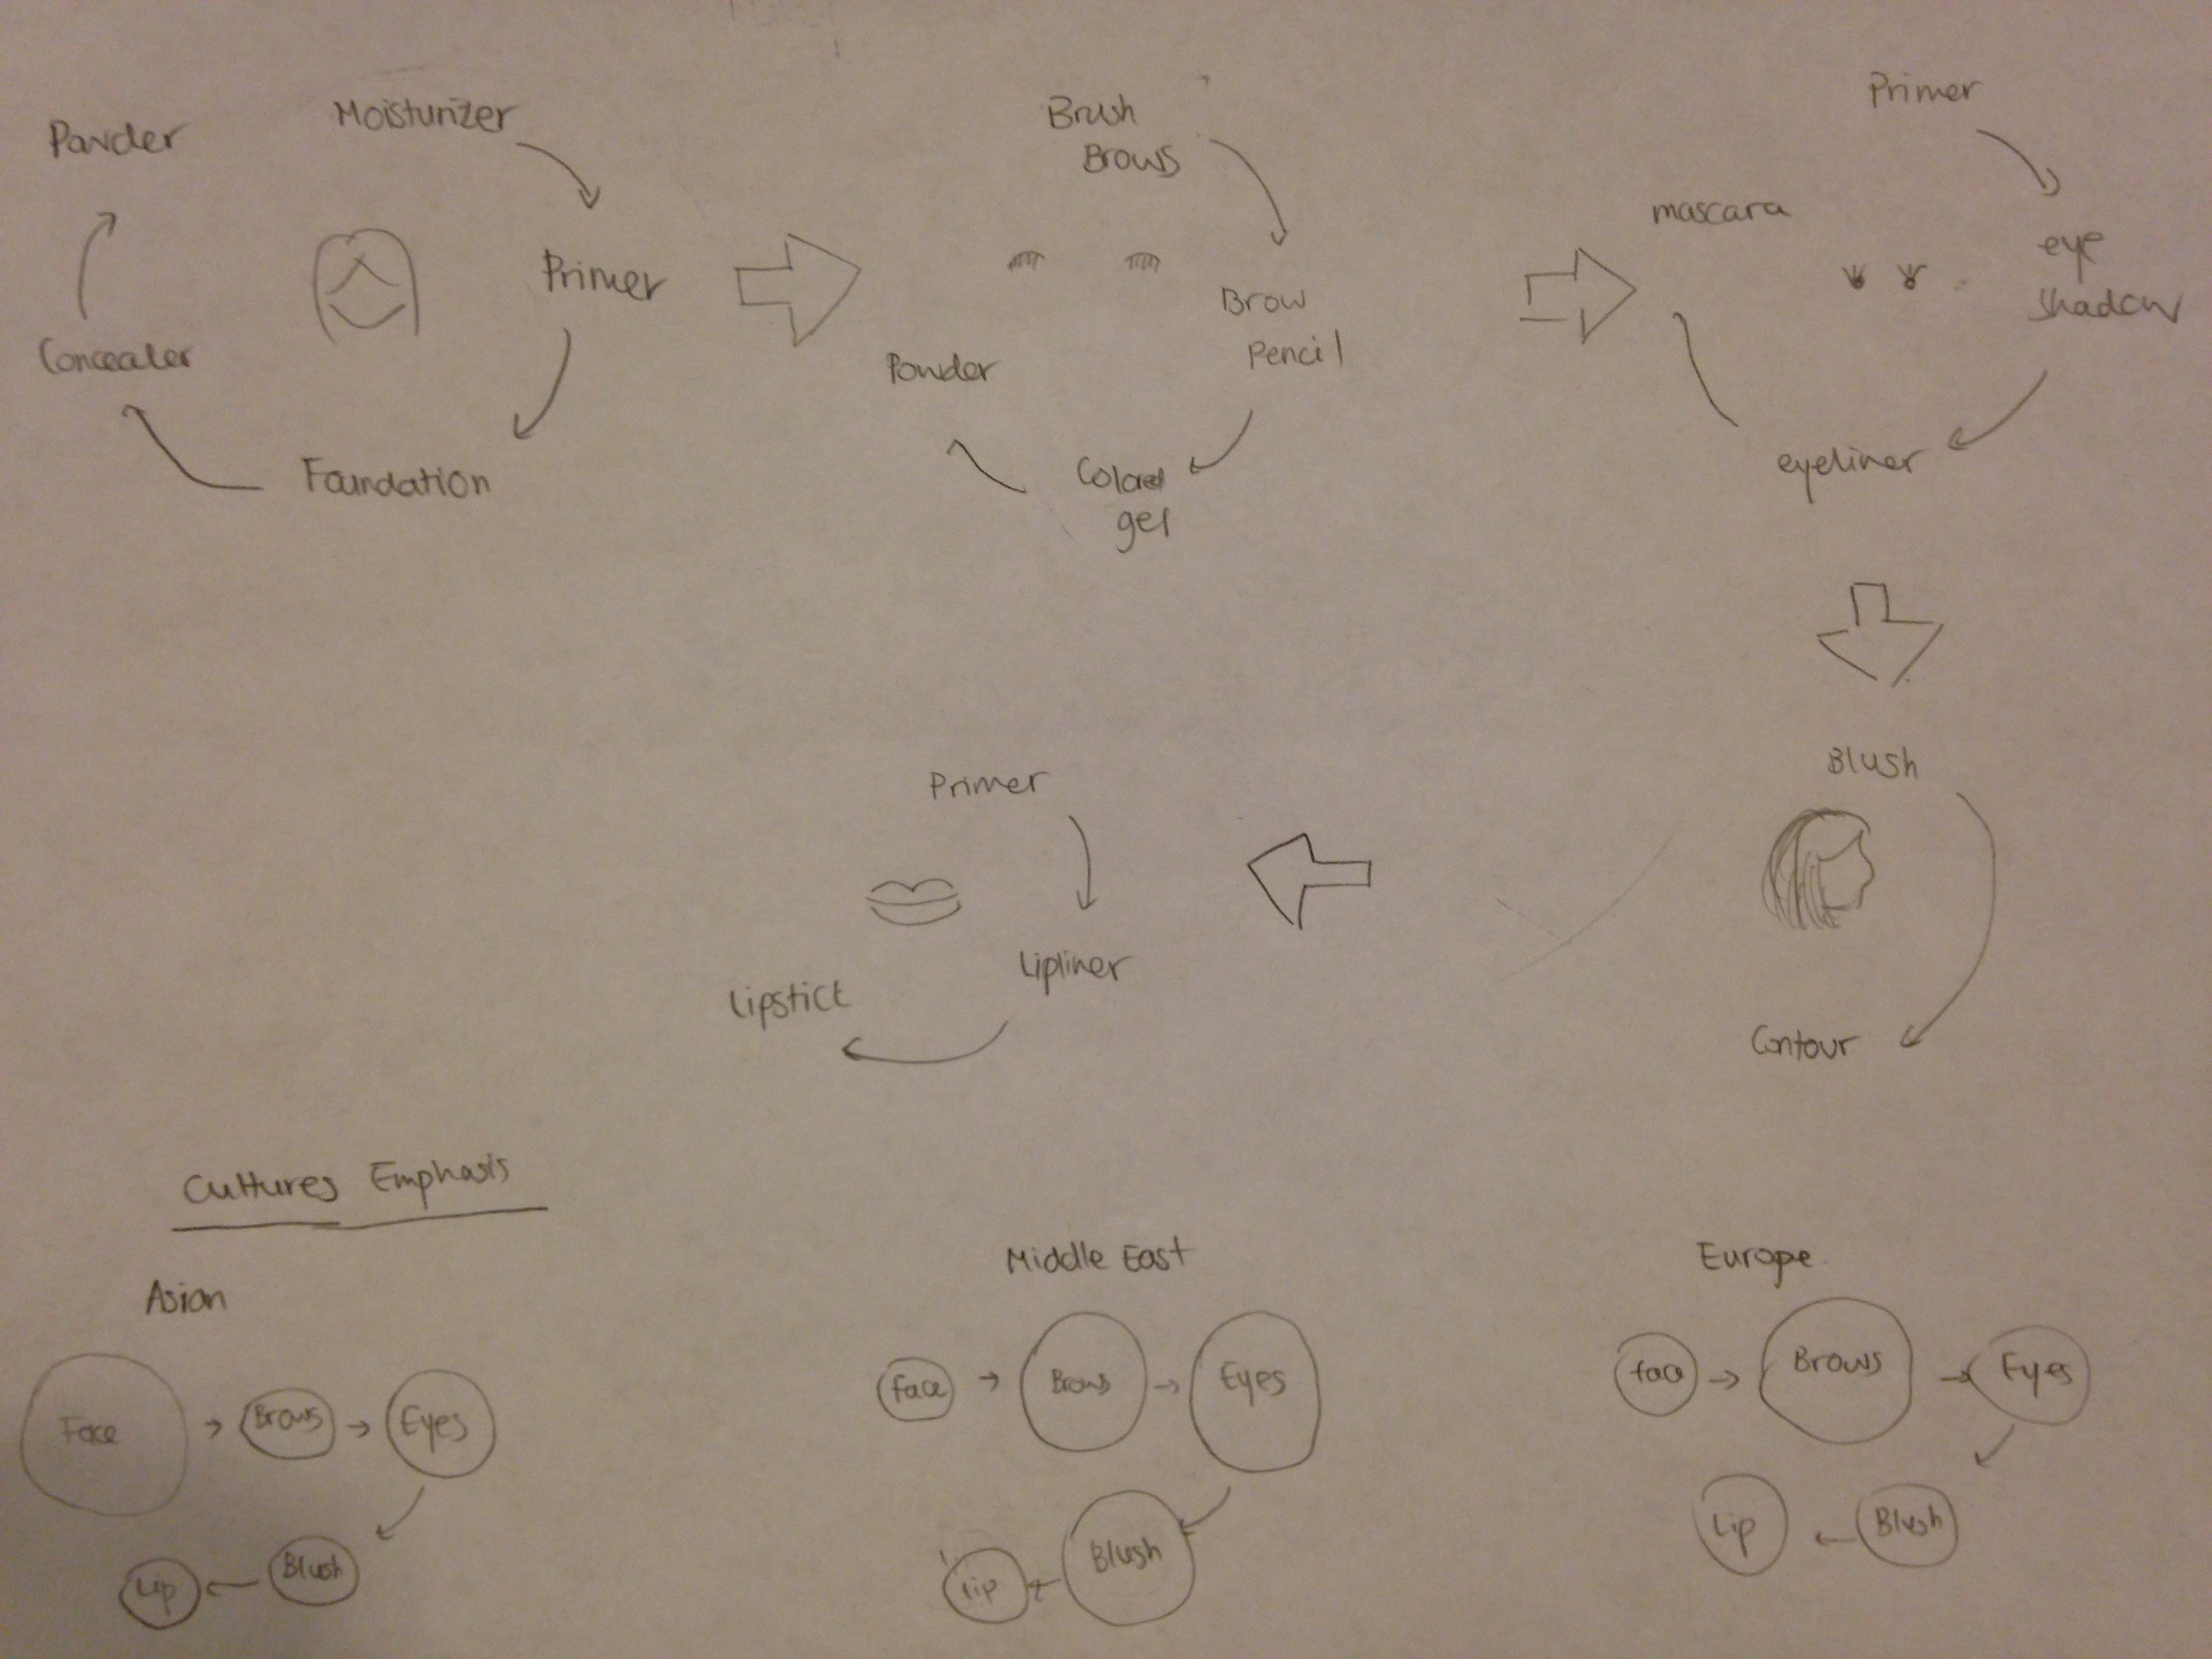 Moisturizer
Primer
Foundation
Concealer
Powder
Brush
Brows
Brow
Pencil
Colored
gel
Powder
Primer
eye
shadow
eyeliner
mascara
Blush
Contour
Primer
Lipliner
Lipstick
Cultures Emphasis
Asian
Face
Brows
Eyes
Blush
Lip
Middle East
face
Brows
Eyes
Blush
lip
Europe
face
Brows
Eyes
Blush
Lip